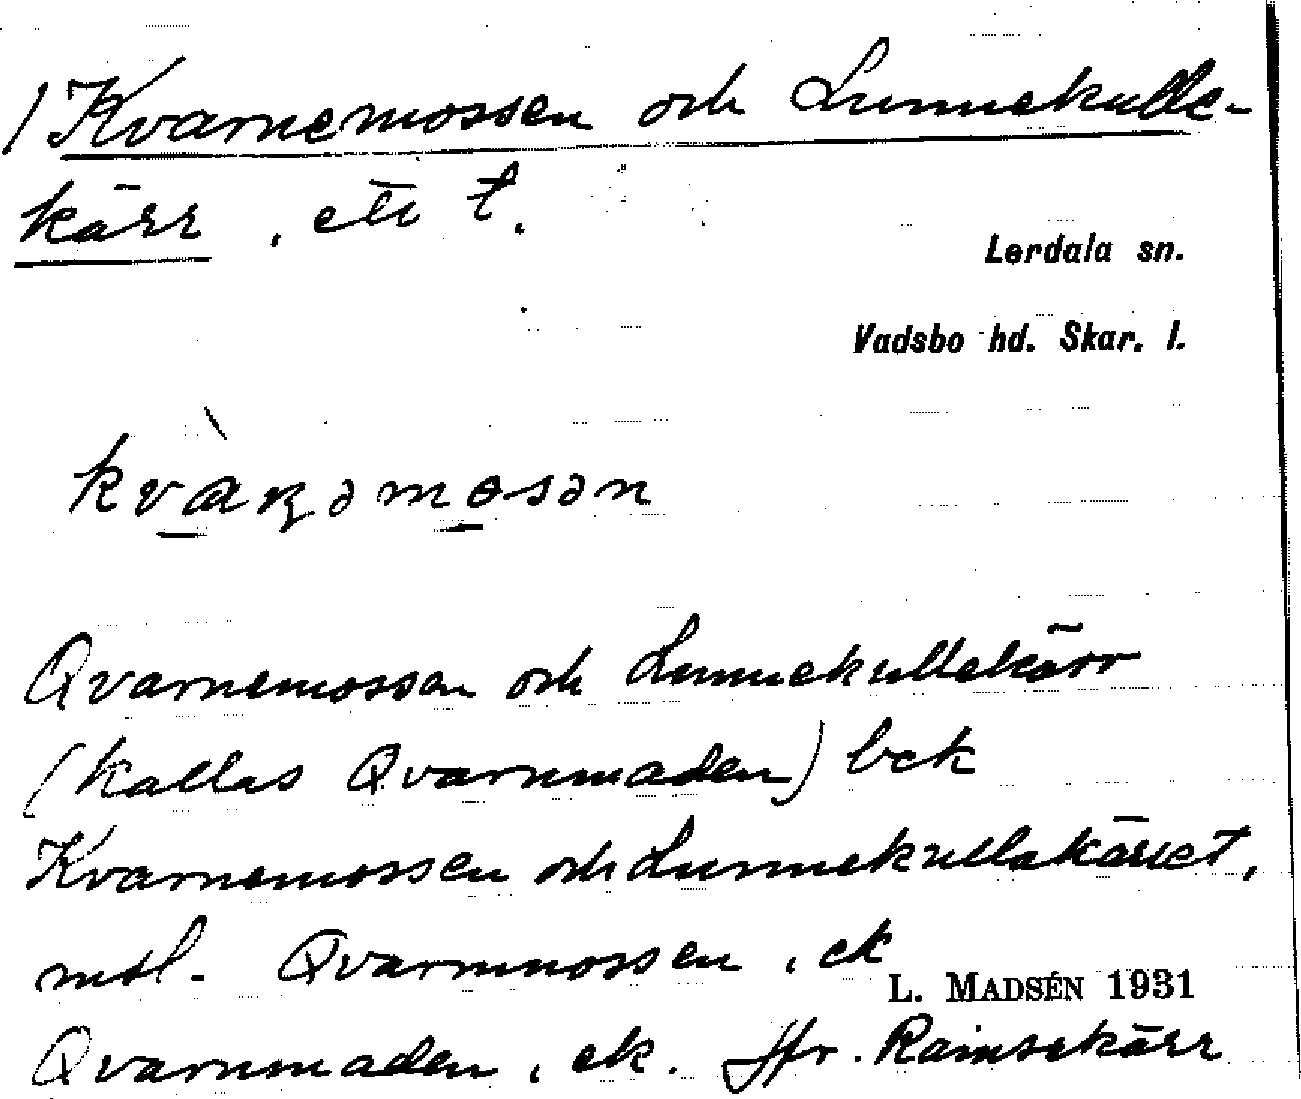 1 Kvarnemossen och Lunnekulle-
kärr, ett t.
Lerdala sn.
Vadsbo hd. Skar. l.
kvàɳəmosən
Qvarnemossen och Lunnekullekärr
(kallas Qvarnmaden) bck
Kvarnemossen och Lunnekullakärret,
mtl. Qvarnmossen, ek
L. MADSÉN 1931
Qvarnmaden, ek. Jfr. Ramsekärr